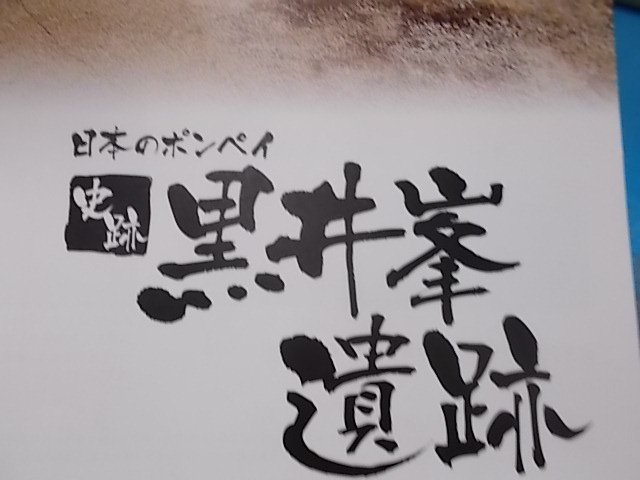 日本のポンペイ
史跡
黒井峯
遺跡